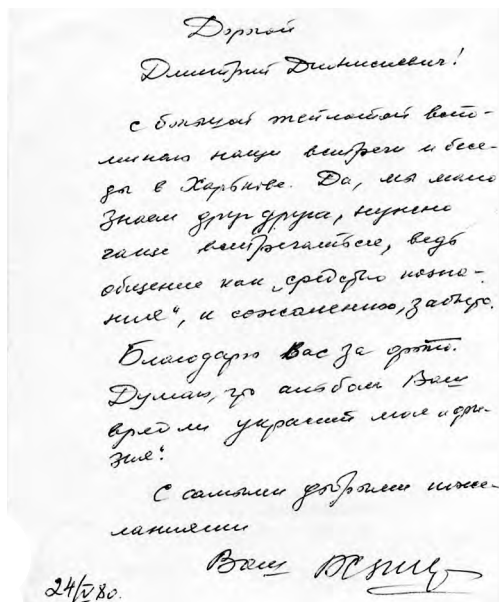 Дорогой
Дмитрий Дионисиевич!
с большой теплотой вспо-
минаю наши встречи и бесе-
ды в Харькове. Да, мы мало
знаем друг друга, нужно
чаще встречаться, ведь
общение как „средство позна-
ния“, к сожалению, забыто.
Благодарю Вас за фото.
Думаю, что альбом Ваш
вряд ли украсит моя „физия“.
С самыми добрыми поже-
ланиями
Ваш
24/IV 80.